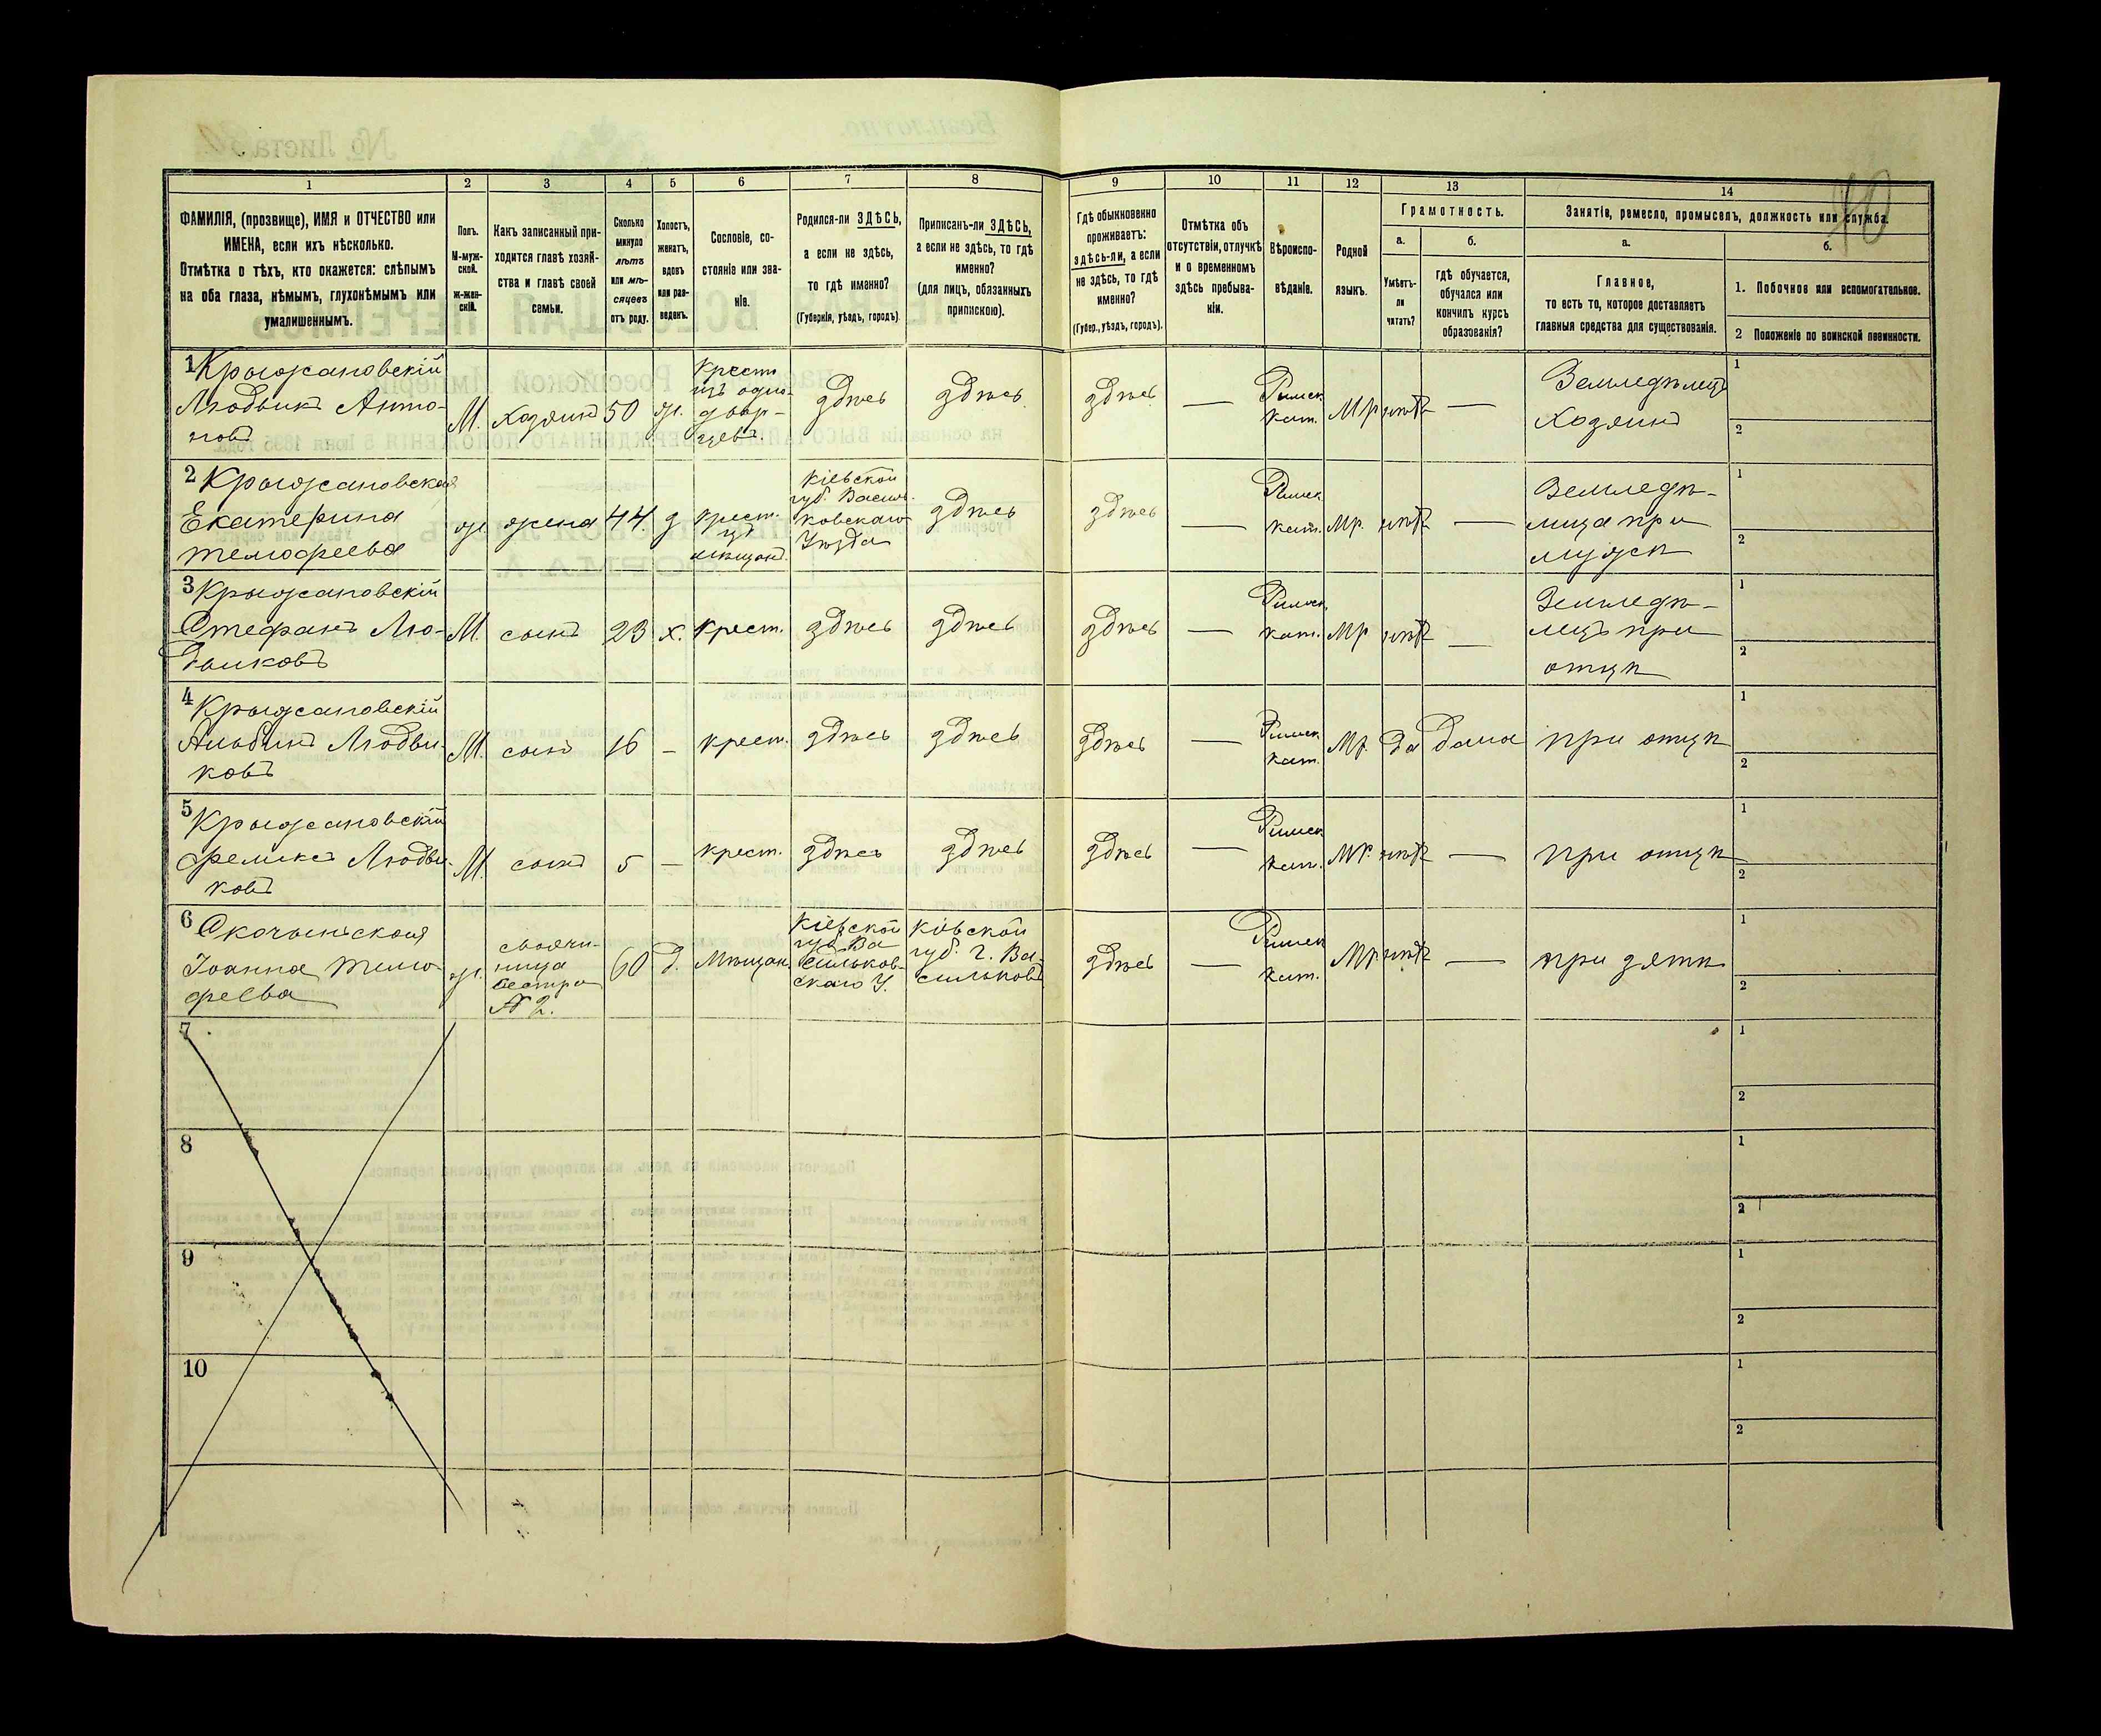 1
2
3
4
5
6
7
8
9
10
11
12
13
14
ФАМИЛІЯ, (прозвище), ИМЯ и ОТЧЕСТВО или
ИМЕНА, если ихъ нѣсколько.
Отмѣтка о тѣхъ, кто окажется: слѣпымъ
на оба глаза, нѣмымъ, глухонѣмымъ или
умалишеннымъ.
Полъ.
М-муж-
ской.
ж-жен-
скій.
Какъ записанный при-
ходится главѣ хозяй-
ства и главѣ своей
семьи.
Сколько
минуло
лѣтъ
или мѣ-
сяцевъ
отъ роду.
Холостъ,
женатъ,
вдовъ
или раз-
веденъ.
Сословіе, со-
стояніе или зва-
ніе.
Родился-ли ЗДѢСЬ,
а если не здѣсь,
то гдѣ именно?
(Губернія, уѣздъ, городъ)
Приписанъ-ли ЗДѢСЬ,
а если не здѣсь, то гдѣ
именно?
(для лицъ, обязанныхъ
припискою).
Гдѣ обыкновенно
проживаетъ:
здѣсь-ли, а если
не здѣсь, то гдѣ
именно?
(Губер., уѣздъ, городъ).
Отмѣтка объ
отсутствіи, отлучкѣ
и о временномъ
здѣсь пребыва-
ніи.
Вѣроиспо-
вѣданіе.
Родной
языкъ.
Грамотность.
а.
Умѣетъ-
ли
читать?
б.
гдѣ обучается,
обучался или
кончилъ курсъ
образованія?
Занятіе, ремесло, промыселъ, должность или служба.
а.
Главное,
то есть то, которое доставляетъ
главныя средства для существованія.
б.
1. Побочное или вспомогательное.
2 Положеніе по воинской повинности.
1 Крыжановскій
Людвикъ Анто-
новъ
М.
хозяинъ
50
ж.
Крест.
изъ одно-
двор-
цевъ.
здѣсь
здѣсь
здѣсь
—
Римск.
кат.
Мр
нѣтъ
—
Земледѣлецъ
Хозяинъ
1
2
2 Крыжановская
Екатерина
Тимофеева
ж
жена
44
з
крест.
изъ
мѣщанъ.
Кіевской
губ. Василь-
ковскаго
Уѣзда
здѣсь
здѣсь
—
Римск.
кат.
Мр.
нѣтъ
—
Земледѣ-
лица при
мужѣ
1
2
3 Крыжановскій
Стефанъ Лю-
двиковъ
М.
сынъ
23
х.
крест.
здѣсь
здѣсь
здѣсь
—
Римск.
кат.
Мр
нѣтъ
—
Земледѣ-
лецъ при
отцѣ
1
2
4 Крыжановскій
Альбинъ Людви-
ковъ
М.
сынъ
16
-
крест.
здѣсь
здѣсь
здѣсь
—
Римск.
кат.
Мр.
да
дома
при отцѣ
1
2
5 Крыжановскій
Феликсъ Людви-
ковъ
М.
сынъ
5
-
крест.
здѣсь
здѣсь
здѣсь
—
Римск.
кат.
Мр.
нѣтъ
—
при отцѣ
1
2
6 Скочинская
Іоанна Тимо-
феева
ж.
своячи-
ница
сестра
№ 2.
60
д.
Мѣщан.
Кіевской
губ. Ва
сильков-
скаго У.
Кіевской
губ. г. Ва-
сильковъ
здѣсь
—
Римск.
кат.
Мр
нѣтъ
—
при зятѣ
1
2
7
1
2
8
1
2
9
1
2
10
1
2